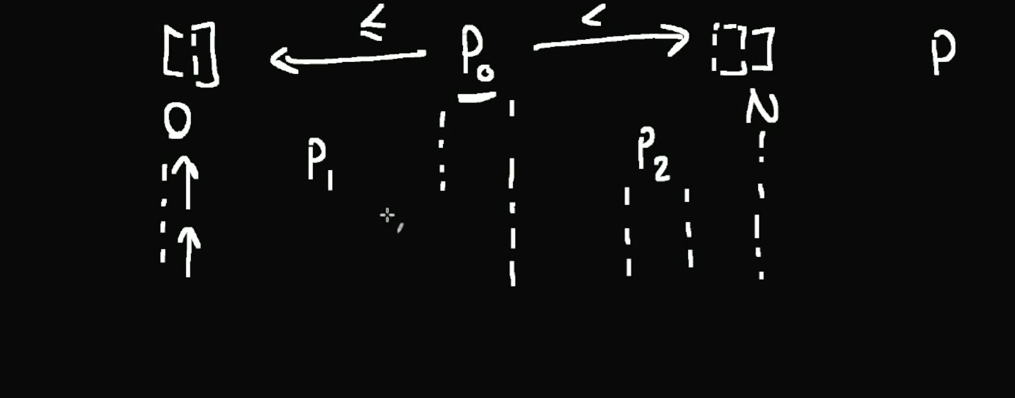 ≤ <
[ ] P₀ [ ] P
0 N
P₁ P₂